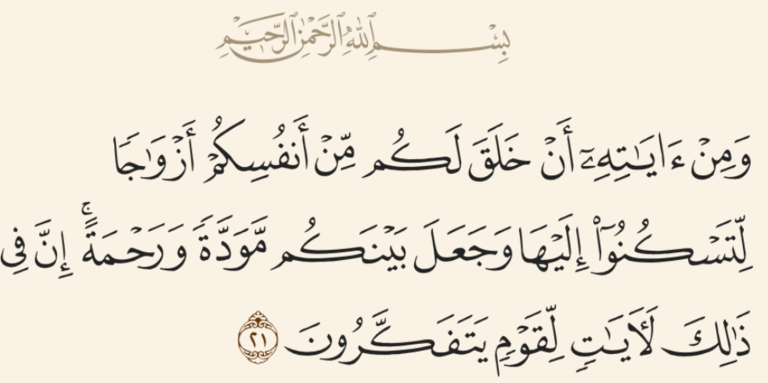 بِسْمِ ٱللَّهِ ٱلرَّحْمَٰنِ ٱلرَّحِيمِ
وَمِنْ ءَايَٰتِهِۦٓ أَنْ خَلَقَ لَكُم مِّنْ أَنفُسِكُمْ أَزْوَٰجًا
لِّتَسْكُنُوٓا۟ إِلَيْهَا وَجَعَلَ بَيْنَكُم مَّوَدَّةً وَرَحْمَةً ۚ إِنَّ فِى
ذَٰلِكَ لَـَٔايَٰتٍ لِّقَوْمٍ يَتَفَكَّرُونَ ٢١